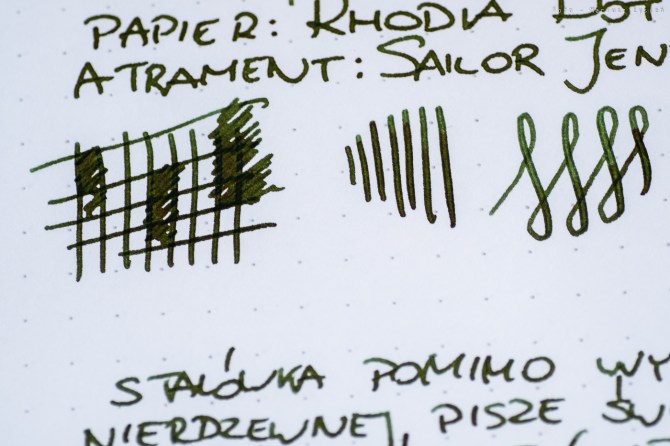 PAPIER: RHODIA DOT
ATRAMENT: SAILOR JEN
STALÓWKA POMIMO WY
NIERDZEWNEJ, PISZE ŚW